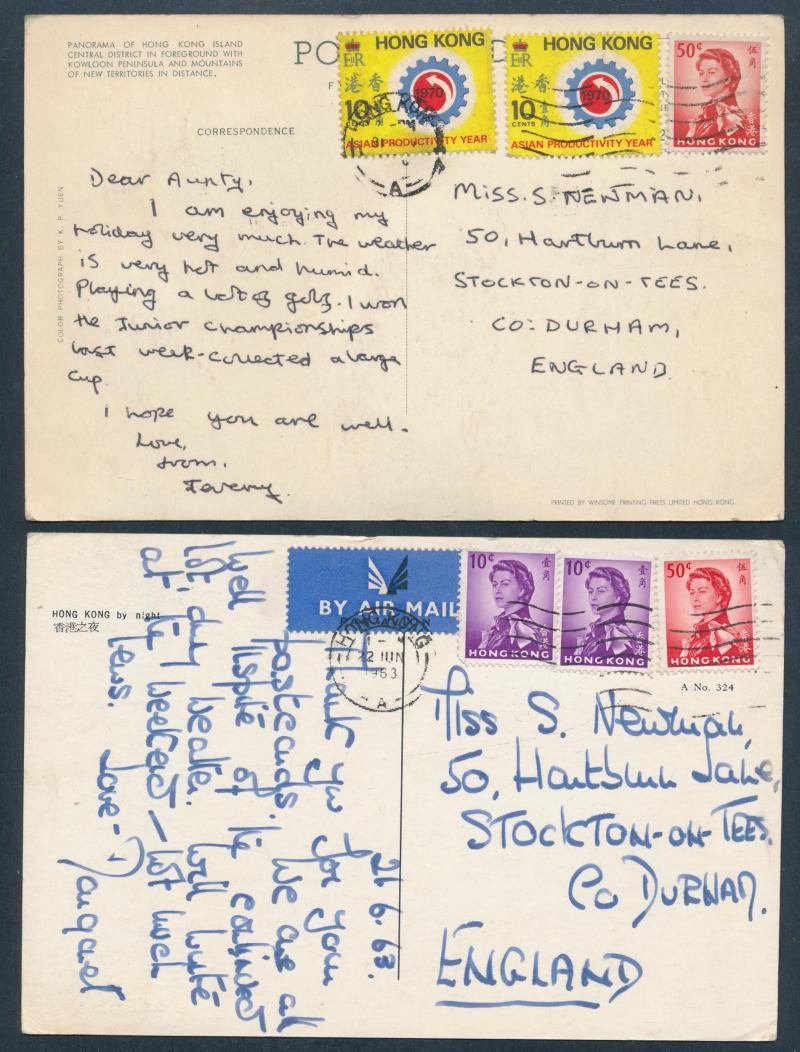 PANORAMA OF HONG KONG ISLAND
CENTRAL DISTRICT IN FOREGROUND WITH
KOWLOON PENINSULA AND MOUNTAINS
OF NEW TERRITORIES IN DISTANCE.
CORRESPONDENCE
COLOR PHOTOGRAPH BY K. P. YUEN
HONG KONG
E II R
香港
壹角
1970
10
CENTS
ASIAN PRODUCTIVITY YEAR
HONG KONG
E II R
香港
壹角
1970
10
CENTS
ASIAN PRODUCTIVITY YEAR
50¢
伍角
香港
HONG KONG
HONG KONG
A
Dear Aunty,
I am enjoying my
holiday very much. The weather
is very hot and humid.
Playing a lot of golf. I won
the Junior Championships
last week-collected a large
cup.
I hope you are well.
Love,
from,
MISS. S. NEWMAN,
50, Hartburn Lane,
STOCKTON-ON-TEES.
CO: DURHAM,
ENGLAND
PRINTED BY WINSOME PRINTING PRESS LIMITED HONG KONG.
HONG KONG by night
香港之夜
BY AIR MAIL
10¢
壹角
香港
HONG KONG
10¢
壹角
香港
HONG KONG
50¢
伍角
香港
HONG KONG
HONG KONG
22 JUN
1963
A
A No. 324
21.6.63.
Thank you for your
postcards. We are all
well inspite of the
lot, dry weather. Will write
at the weekend - lot much
news. Love - Margaret
Miss S. Newman,
50, Hartburn Lane,
STOCKTON-ON-TEES.
Co DURHAM.
ENGLAND